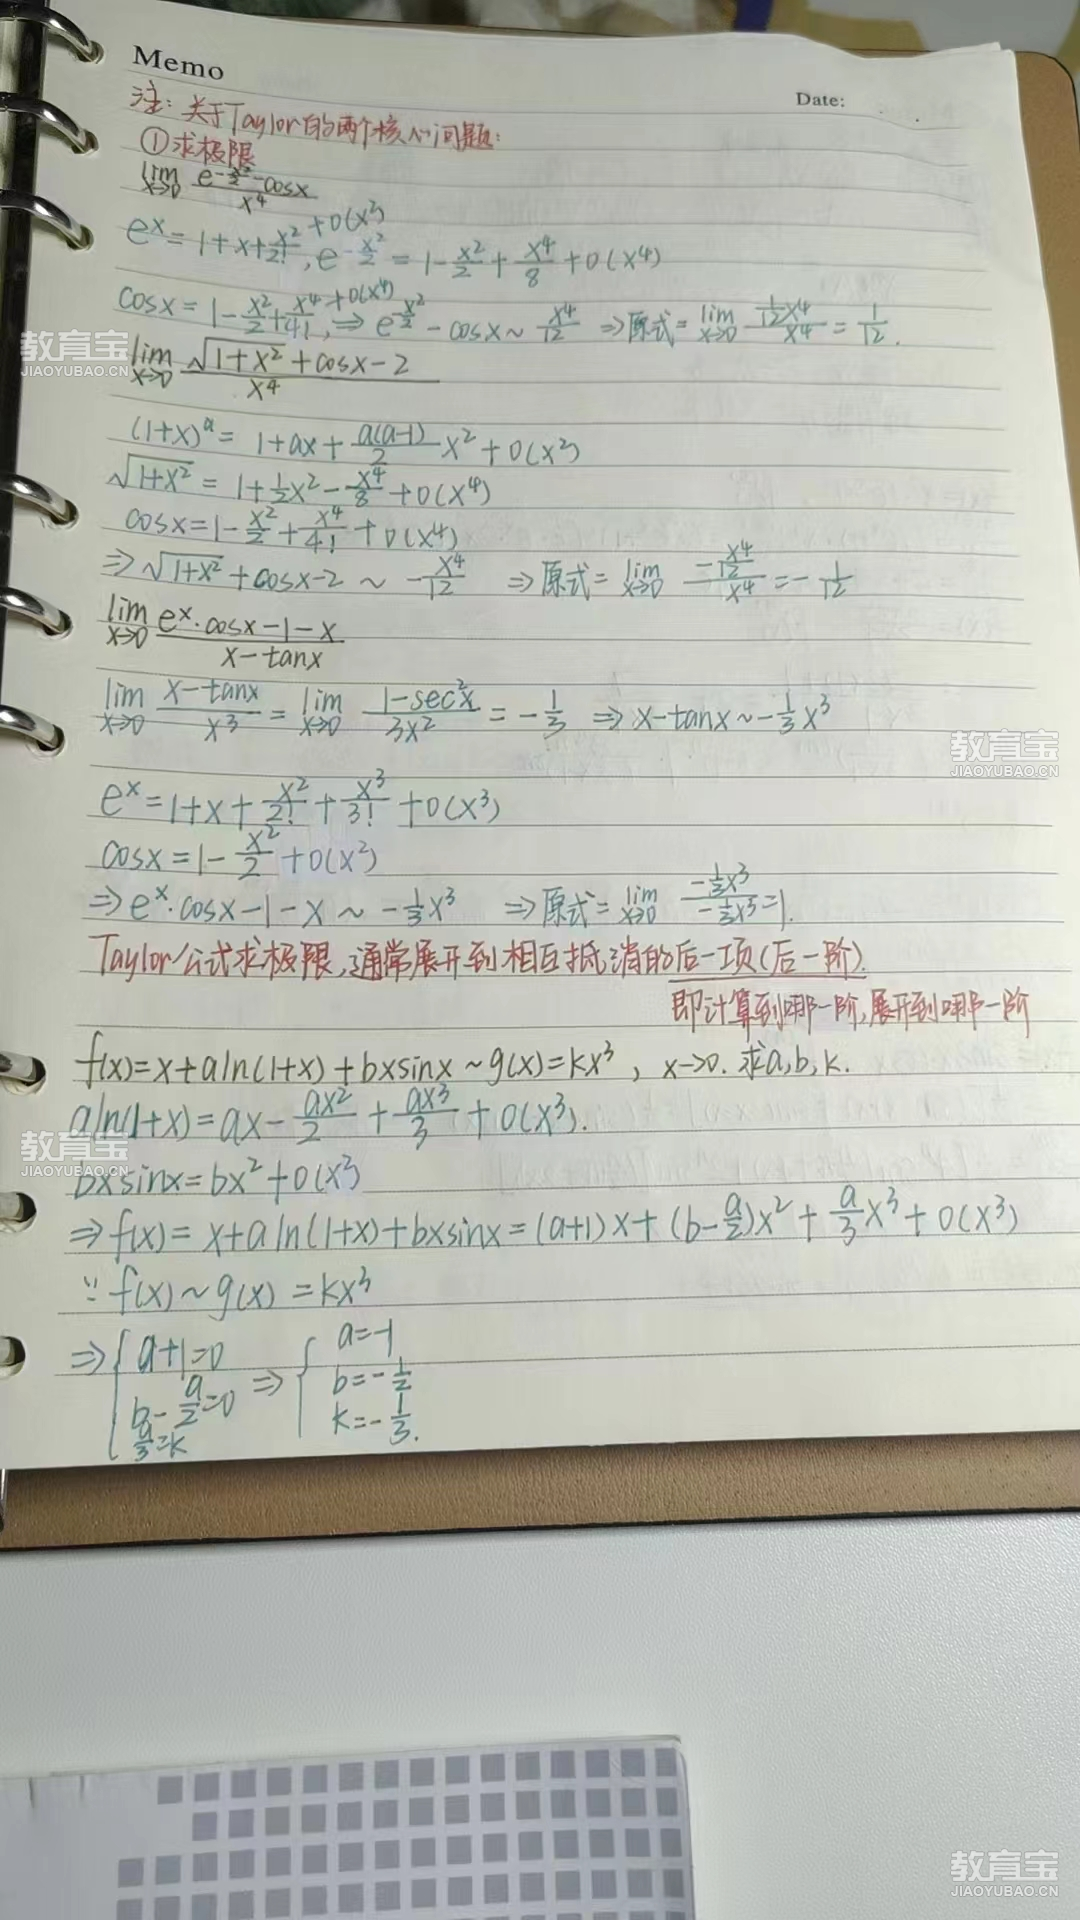 Memo
Date:
注：关于Taylor的两个核心问题：
①求极限
lim x→0 (e^{-x²/2} - cosx)/x⁴
e^x = 1+x+x²/2!+o(x²), e^{-x²/2} = 1-x²/2+x⁴/8+o(x⁴)
cosx = 1-x²/2+x⁴/4!+o(x⁴), ⇒ e^{-x²/2} - cosx ~ x⁴/12 ⇒ 原式 = lim x→0 (1/12 x⁴)/x⁴ = 1/12.
lim x→0 (√(1+x²) + cosx - 2)/x⁴
(1+x)^a = 1+ax+a(a-1)/2 x²+o(x²)
√(1+x²) = 1+1/2x²-x⁴/8+o(x⁴)
cosx = 1-x²/2+x⁴/4!+o(x⁴)
⇒ √(1+x²) + cosx-2 ~ -x⁴/12 ⇒ 原式 = lim x→0 (-x⁴/12)/x⁴ = -1/12
lim x→0 (e^x·cosx-1-x)/(x-tanx)
lim x→0 (x-tanx)/x³ = lim x→0 (1-sec²x)/3x² = -1/3 ⇒ x-tanx ~ -1/3 x³
e^x = 1+x+x²/2!+x³/3!+o(x³)
cosx = 1-x²/2+o(x²)
⇒ e^x·cosx-1-x ~ -1/3x³ ⇒ 原式 = lim x→0 (-1/3x³)/(-1/3x³) = 1.
Taylor公式求极限，通常展开到相互抵消的后一项(后一阶).
即计算到哪一阶，展开到哪一阶
f(x)=x+aln(1+x)+bxsinx ~ g(x)=kx³, x→0. 求a,b,k.
aln(1+x)=ax-ax²/2+ax³/3+o(x³).
bxsinx=bx²+o(x³)
⇒ f(x)=x+aln(1+x)+bxsinx=(a+1)x+(b-a/2)x²+a/3x³+o(x³)
∵ f(x)~g(x)=kx³
⇒ { a+1=0 ⇒ { a=-1
b-a/2=0 b=-1/2
a/3=k k=-1/3.
教育宝
JIAOYUBAO.CN
教育宝
JIAOYUBAO.CN
教育宝
JIAOYUBAO.CN
教育宝
JIAOYUBAO.CN